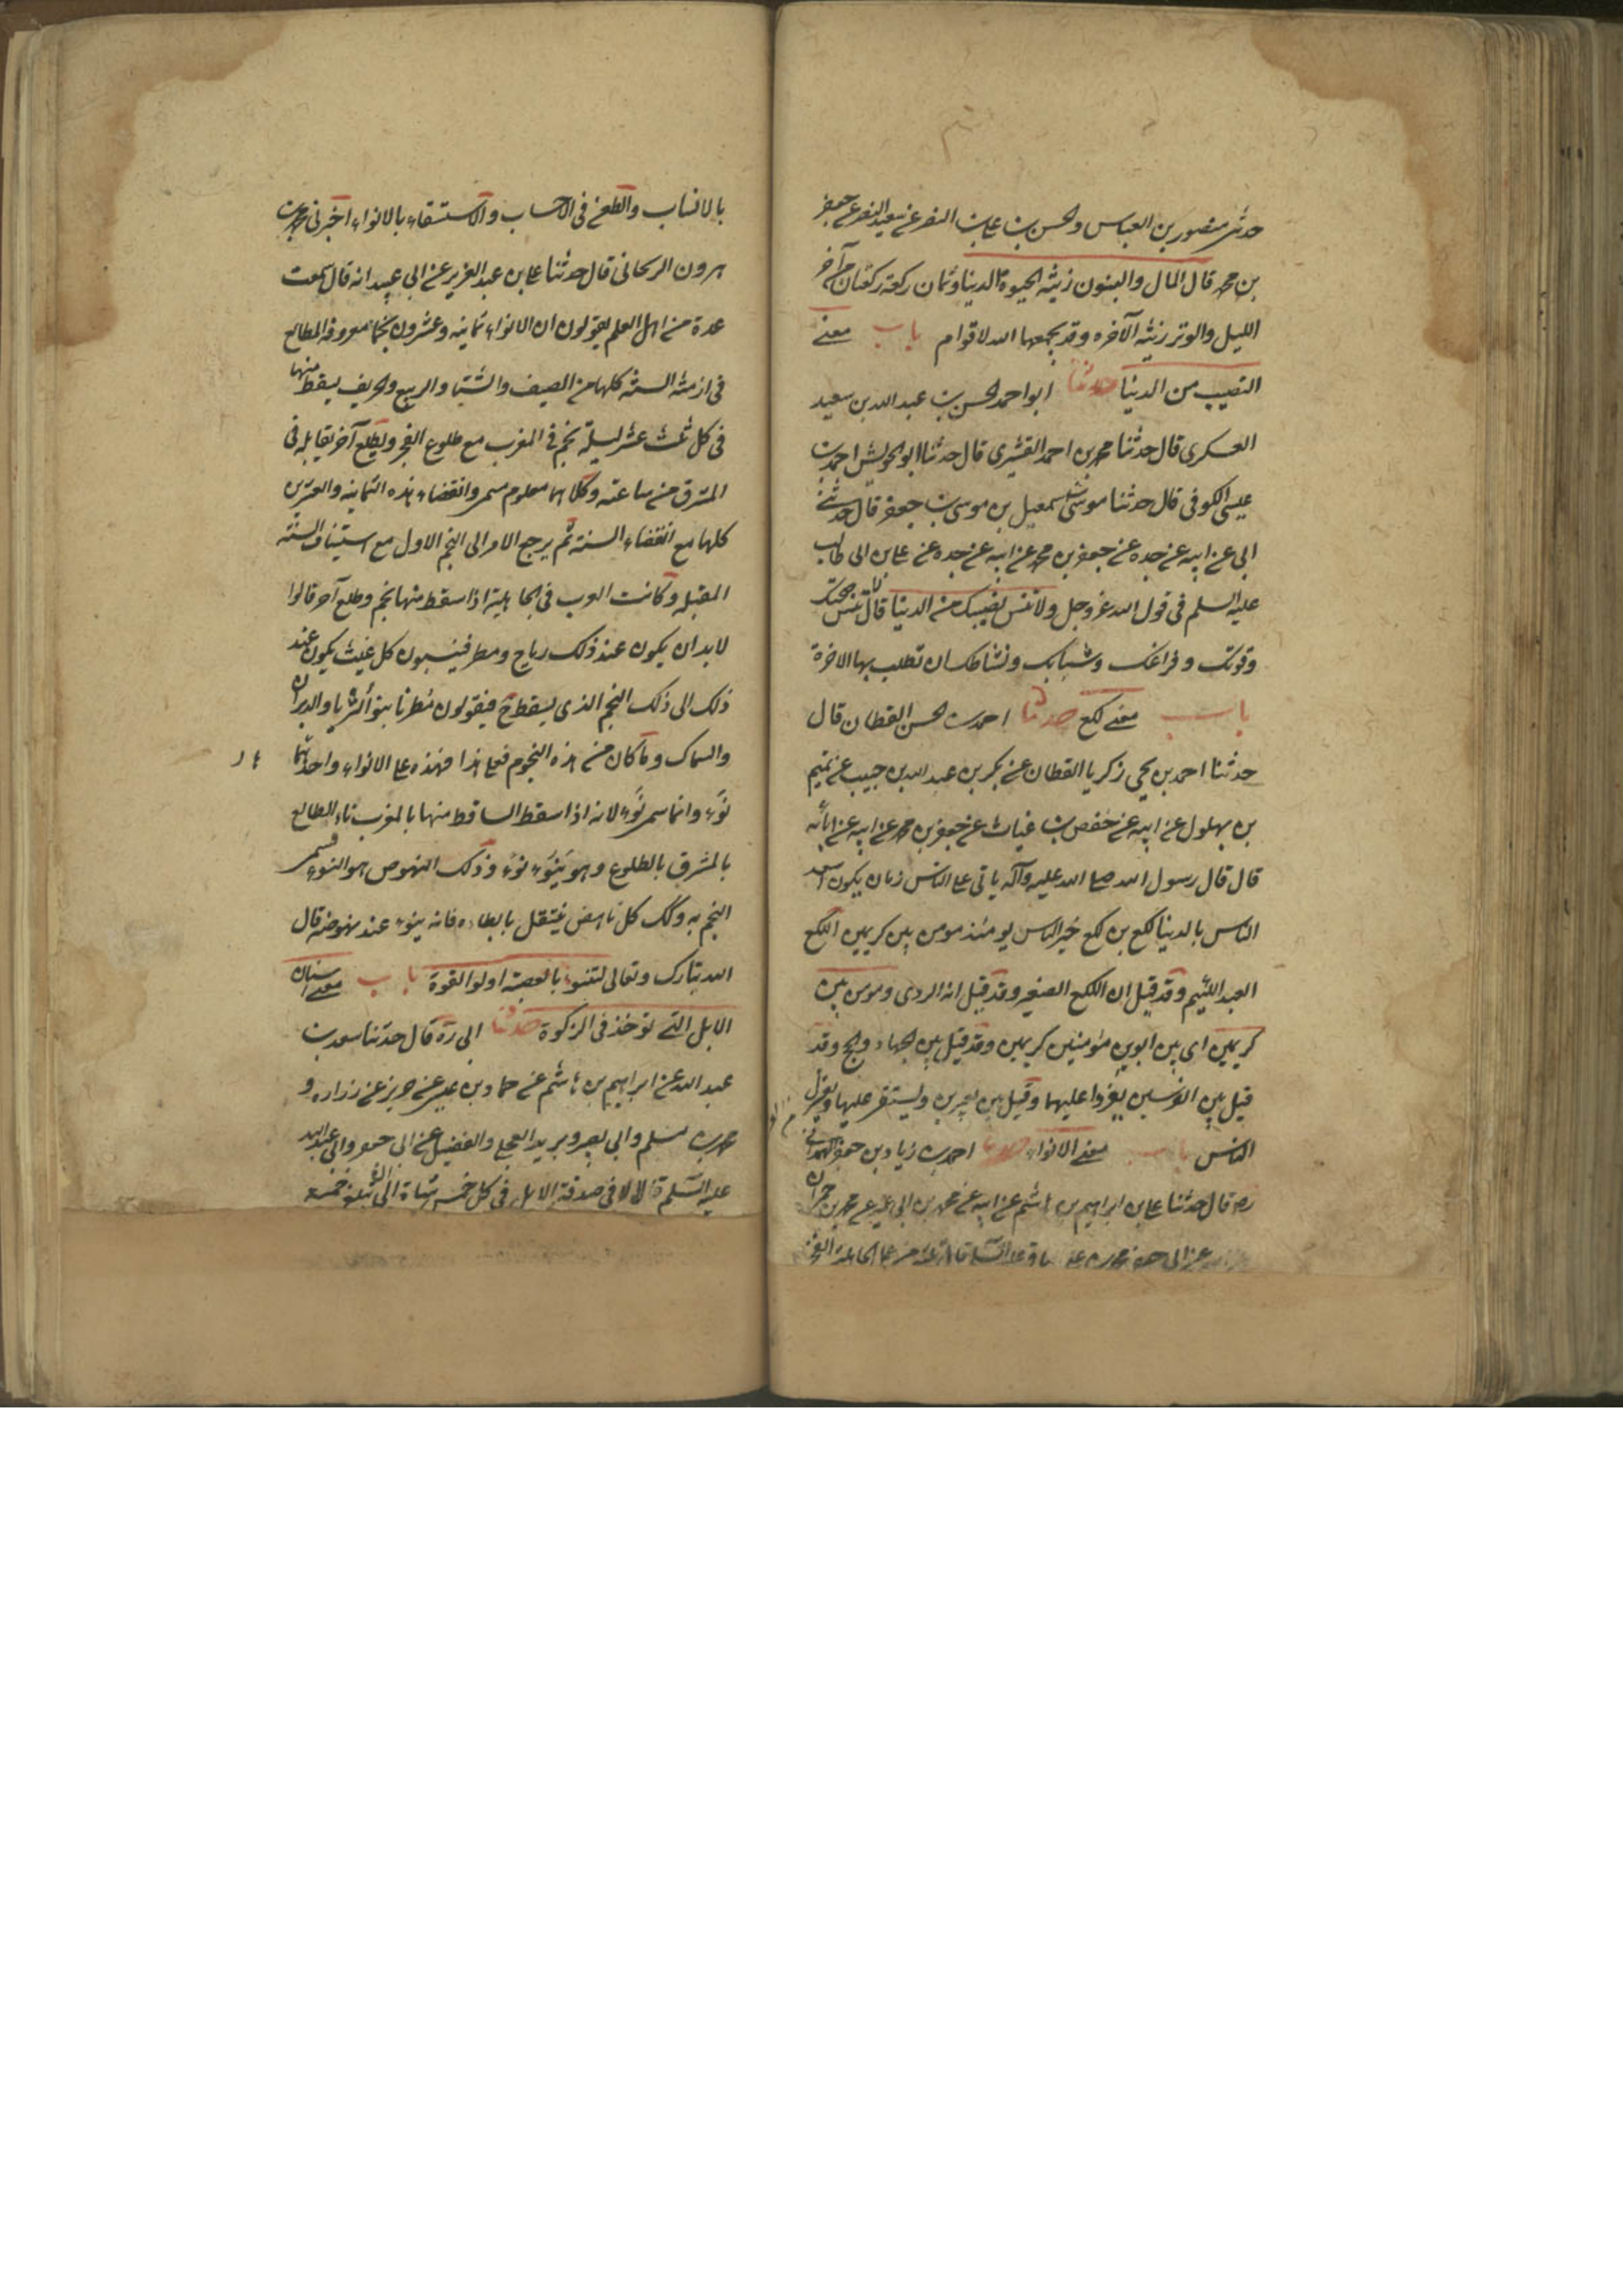 حدثنى منصور بن العباس والحسن بن على بن النضر عن سعيد النضر عن جعفر
بن محمد قال المال والبنون زينة الحيوة الدنيا وثمان ركعة ركعتان من آخر
الليل والوتر زينة الآخره وقد يجمعها الله لاقوام باب معنى
النصيب من الدنيا حدثنا ابو احمد الحسن بن عبد الله بن سعيد
العسكرى قال حدثنا محمد بن احمد القشيرى قال حدثنا ابو الحريش احمد بن
عيسى الكوفى قال حدثنا موسى بن اسمعيل بن موسى بن جعفر قال حدثنى
ابى عن ابيه عن جده عن جعفر بن محمد عن ابيه عن جده عن على بن ابى طالب
عليه السلم فى قول الله عز وجل ولا تنس نصيبك من الدنيا قال لا تنس صحتك
وقوتك وفراغك وشبابك ونشاطك ان تطلب بها الاخرة
باب معنى لكع حدثنا احمد بن الحسن القطان قال
حدثنا احمد بن يحيى زكريا القطان عن بكر بن عبد الله بن حبيب عن تميم
بن بهلول عن ابيه عن حفص بن غياث عن جعفر بن محمد عن ابيه عن ابائه
قال قال رسول الله صلى الله عليه وآله ياتى على الناس زمان يكون اسعد
الناس بالدنيا لكع بن لكع خير الناس يومئذ مومن بين كريمين اللكع
العبد اللئيم وقد قيل ان اللكع الصغير وقد قيل انه الردى ومومن بين
كريمين اى بين ابوين مؤمنين كريمين وقد قيل بين الجهاد والحج وقد
قيل بين الفرسين يغزوا عليهما وقيل بين بعيرين ويستقى عليها ويعتزل
الناس باب معنى الانواء حدثنا احمد بن زياد بن جعفر الهمدانى
ره قال حدثنا على بن ابراهيم بن هاشم عن ابيه عن محمد بن ابى عمير عن محمد بن حمران
عن ابى جعفر محمد بن على الباقر عليه السلم قال ثلثة من عمل الجاهلية الفخر
بالانساب والطعن فى الاحساب والاستسقاء بالانواء اخبرنى محمد بن
هرون الزنجانى قال حدثنا على بن عبد العزيز عن ابى عبيد انه قال سمعت
عدة من اهل العلم يقولون ان الانواء ثمانية وعشرون نجما معروفة المطالع
فى ازمنة السنة كلها من الصيف والشتاء والربيع والخريف يسقط منها
فى كل ثلث عشر ليلة نجم فى المغرب مع طلوع الفجر ويطلع آخر يقابله فى
المشرق من ساعته وكلاهما معلوم مسمى وانقضاء هذه الثمانية والعشرين
كلها مع انقضاء السنة ثم يرجع الامر الى النجم الاول مع استيناف السنة
المقبلة وكانت العرب فى الجاهلية اذا سقط منها نجم وطلع آخر قالوا
لا بد ان يكون عند ذلك رياح ومطر فينسبون كل غيث يكون عند
ذلك الى ذلك النجم الذى يسقط ح فيقولون مطرنا بنوء الثريا والدبران
والسماك وما كان من هذه النجوم فعلى هذا فهذه على الانواء واحدها
نوء وانما سمى نوء لانه اذا سقط الساقط منها بالمغرب ناء الطالع
بالمشرق بالطلوع وهو ينوء نوء وذلك النهوض هو النوء فسمى
النجم به وكك كل ناهض ينتقل بابطاء فانه ينوء عند نهوضه قال
الله تبارك وتعالى لتنوء بالعصبة اولو القوة باب معنى اسنان
الابل التى توخذ فى الزكوة حدثنا ابى ره قال حدثنا سعد بن
عبد الله عن ابراهيم بن هاشم عن حماد بن عيسى عن حريز عن زراره و
محمد بن مسلم وابى بصير وبريد العجلى والفضيل عن ابى جعفر وابى عبد الله
عليه السلم قالا فى صدقة الابل فى كل خمس شاة الى ان تبلغ خمسة